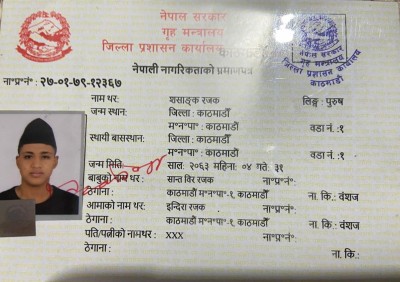 नेपाल सरकार
गृह मन्त्रालय
जिल्ला प्रशासन कार्यालय, काठमाडौं
नेपाल सरकार
गृह मन्त्रालय
जिल्ला प्रशासन कार्यालय
काठमाडौं
नेपाली नागरिकताको प्रमाणपत्र
ना॰प्र॰नं॰ : २७-०१-७९-१२३६७
नाम थर: शसाङ्क रजक लिङ्ग : पुरुष
जन्म स्थान: जिल्ला : काठमाडौं
म॰न॰पा॰ : काठमाडौं वडा नं. :१
स्थायी बासस्थान: जिल्ला : काठमाडौं
म॰न॰पा॰ : काठमाडौं वडा नं. :१
जन्म मिति: साल: २०६३ महिना: ०४ गते: ३१
बाबुको नाम थर: सान्त विर रजक ना॰प्र॰नं॰:
ठेगाना : काठमाडौं म॰न॰पा॰-१, काठमाडौं ना. कि.: वंशज
आमाको नाम थर: इन्दिरा रजक ना॰प्र॰नं॰:
ठेगाना : काठमाडौं म॰न॰पा॰-१, काठमाडौं ना. कि.: वंशज
पति/पत्नीको नामथर: XXX ना॰प्र॰नं॰:
ठेगाना : ना. कि.: